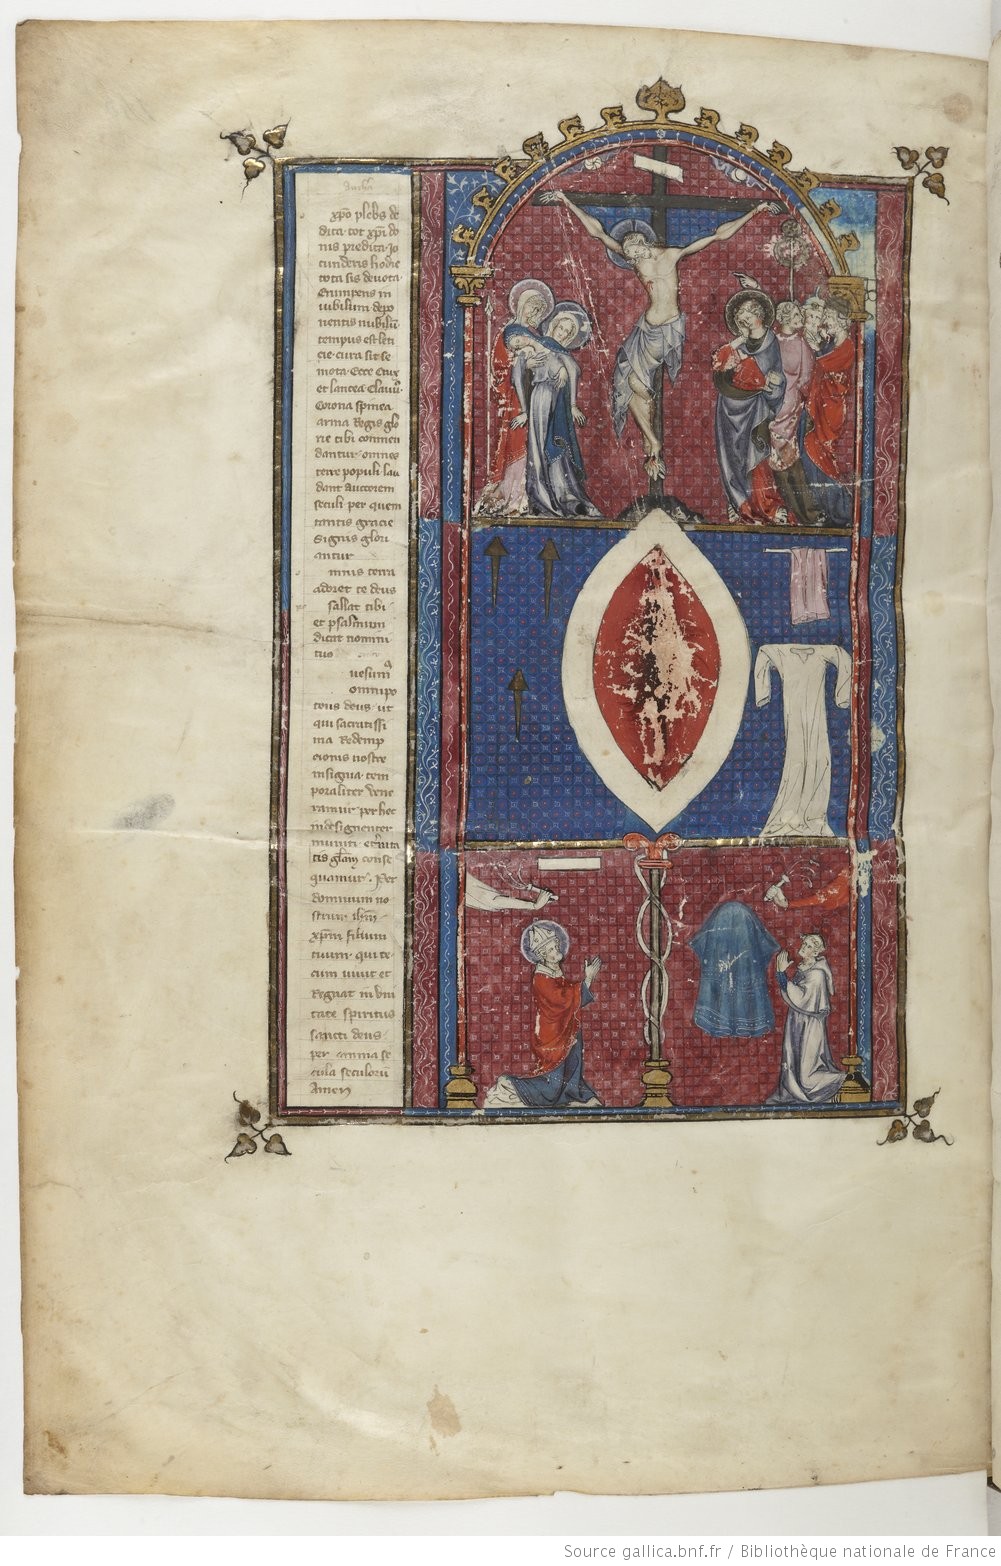 xpo plebs de
dita tot xpi do
nis predita Jo
cunderis hodie
tota sis devota
Erumpens in
iubilum depo
nentis nubilum
tempus est leti
cie cura sit se
mota Ecce Crux
et lancea Clavus
Corona spinea
arma Regis glo
rie tibi commen
dantur omnes
terre populi lau
dant Auctorem
seculi per quem
tantis gracie
Signis glori
antur
mnis terra
adoret te deus
sallat tibi
et psalmum
dicat nomini
tuo
quesumus
omnipo
tens deus ut
qui sacratissi
ma Redemp
cionis nostre
insignia tem
poraliter vene
ramur per hec
indesignenter
muniti eternita
tis gliam conse
quamur Per
dominum no
strum ihm
xpm filium
tuum qui te
cum vivit et
Regnat in uni
tate spiritus
sancti deus
per omnia se
cula seculorum
Amen
Source gallica.bnf.fr / Bibliothèque nationale de France